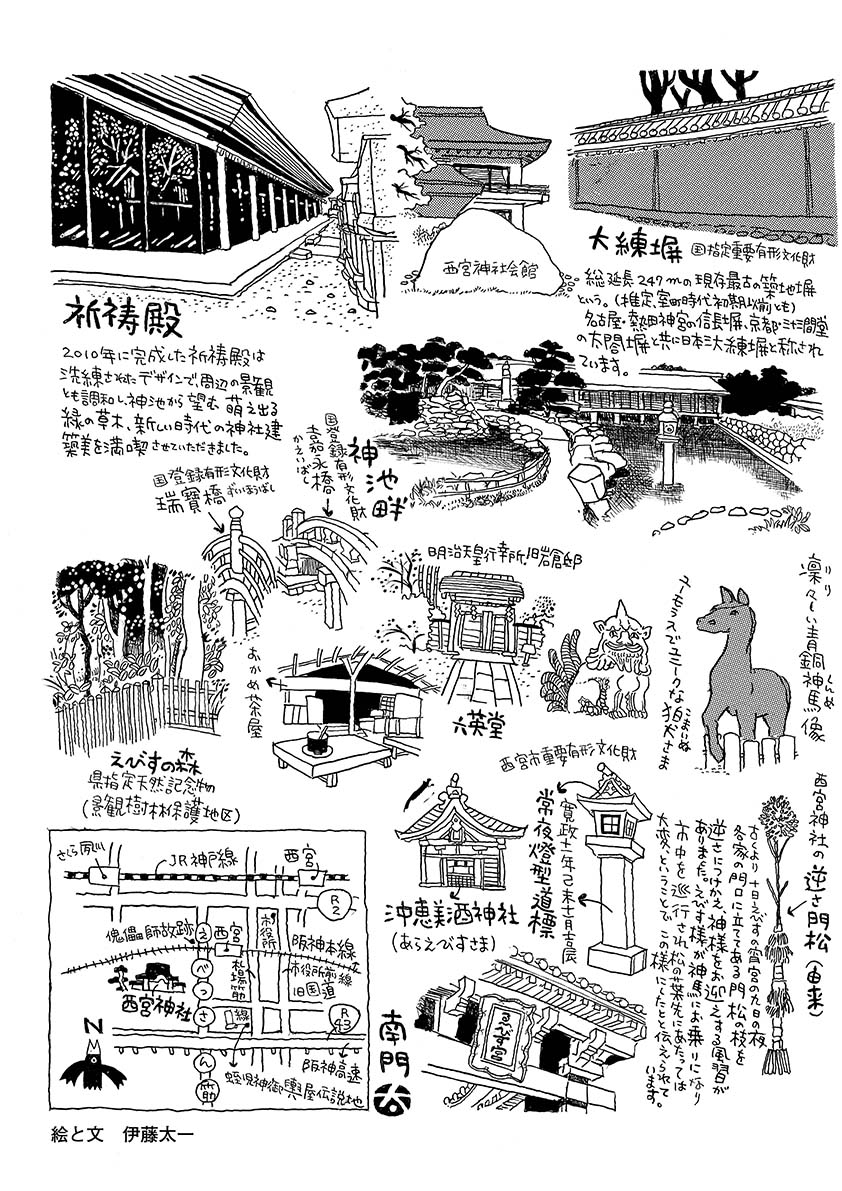 西宮神社会館
大練塀
国指定重要有形文化財
総延長247mの現存最古の築地塀
という。(推定、室町時代初期以前とも)
名古屋・熱田神宮の信長塀、京都・三十三間堂
の太閤塀と共に日本三大練塀と称され
ています。
祈祷殿
2010年に完成した祈祷殿は
洗練されたデザインで、周辺の景観
とも調和し、神池から望む 萌え出る
緑の草木、新しい時代の神社建
築美を満喫させていただきました。
神池畔
国登録有形文化財
嘉永橋
かえいばし
国登録有形文化財
瑞寶橋
ずいほうばし
明治天皇行幸所、旧岩倉邸
六英堂
おかめ茶屋
ユーモラスでユニークな狛犬さま
こまいぬ
凛々しい青銅神馬像
りり
しんめ
えびすの森
県指定天然記念物
(景観樹林保護地区)
西宮市重要有形文化財
常夜燈型道標
寛政十一年己未十一月吉辰
沖恵美酒神社
(あらえびすさま)
西宮神社の逆さ門松(由来)
古くより十日えびすの宵宮の九日の夜
各家の門口に立ててある門松の枝を
逆さにつけかえ、神様をお迎えする風習が
ありました。えびす様が神馬にお乗りになり
市中を巡行され松の葉先にあたっては
大変、ということで この様にしたと伝えられて
います。
南門
さくら夙川
JR神戸線
西宮
R2
傀儡師故跡
西宮
市役所
阪神本線
市役所前線
旧国道
札場筋
西宮神社
えべっさん筋
R43
阪神高速
蛭児神御輿屋伝説地
N
絵と文 伊藤太一